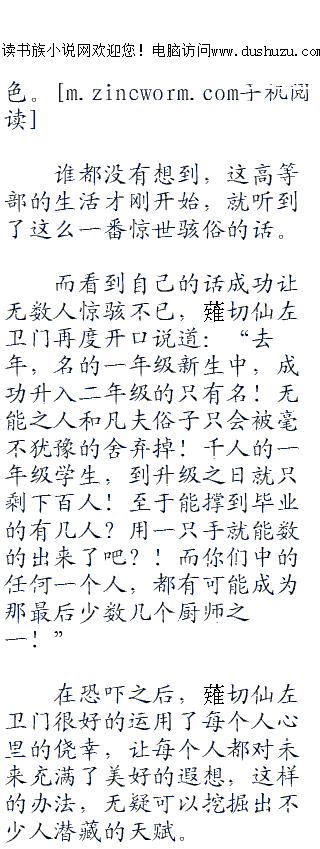 读书族小说网欢迎您！电脑访问www.dushuzu.com
色。[m.zincworm.com手机阅
读]
谁都没有想到，这高等
部的生活才刚开始，就听到
了这么一番惊世骇俗的话。
而看到自己的话成功让
无数人惊骇不已，薙切仙左
卫门再度开口说道：“去
年，名的一年级新生中，成
功升入二年级的只有名！无
能之人和凡夫俗子只会被毫
不犹豫的舍弃掉！千人的一
年级学生，到升级之日就只
剩下百人！至于能撑到毕业
的有几人？用一只手就能数
的出来了吧？！而你们中的
任何一个人，都有可能成为
那最后少数几个厨师之
一！”
在恐吓之后，薙切仙左
卫门很好的运用了每个人心
里的侥幸，让每个人都对未
来充满了美好的遐想，这样
的办法，无疑可以挖掘出不
少人潜藏的天赋。